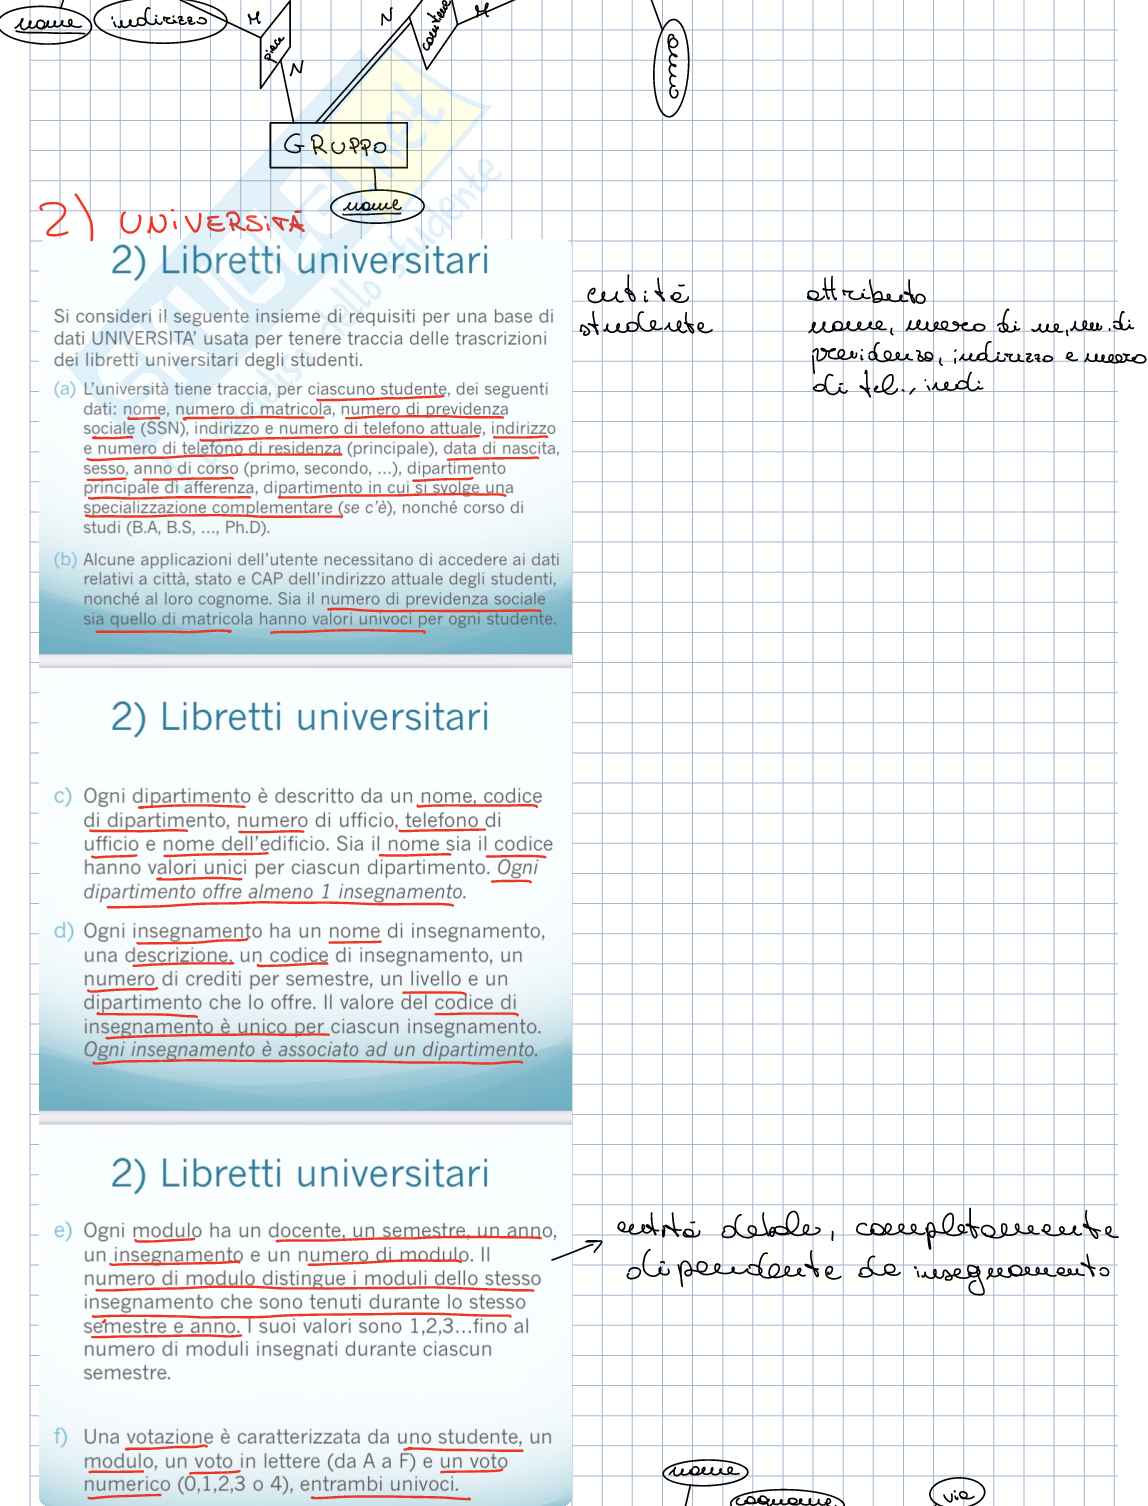 nome indirizzo M N M
piace contiene
N
anno
GRUPPO
nome
2) UNIVERSITÀ
2) Libretti universitari
Si consideri il seguente insieme di requisiti per una base di
dati UNIVERSITA' usata per tenere traccia delle trascrizioni
dei libretti universitari degli studenti.
(a) L'università tiene traccia, per ciascuno studente, dei seguenti
dati: nome, numero di matricola, numero di previdenza
sociale (SSN), indirizzo e numero di telefono attuale, indirizzo
e numero di telefono di residenza (principale), data di nascita,
sesso, anno di corso (primo, secondo, ...), dipartimento
principale di afferenza, dipartimento in cui si svolge una
specializzazione complementare (se c'è), nonché corso di
studi (B.A, B.S, ..., Ph.D).
(b) Alcune applicazioni dell'utente necessitano di accedere ai dati
relativi a città, stato e CAP dell'indirizzo attuale degli studenti,
nonché al loro cognome. Sia il numero di previdenza sociale
sia quello di matricola hanno valori univoci per ogni studente.
entità
studente
attributo
nome, di
previdenza, indirizzo e
di tel., indi
2) Libretti universitari
c) Ogni dipartimento è descritto da un nome, codice
di dipartimento, numero di ufficio, telefono di
ufficio e nome dell'edificio. Sia il nome sia il codice
hanno valori unici per ciascun dipartimento. Ogni
dipartimento offre almeno 1 insegnamento.
d) Ogni insegnamento ha un nome di insegnamento,
una descrizione, un codice di insegnamento, un
numero di crediti per semestre, un livello e un
dipartimento che lo offre. Il valore del codice di
insegnamento è unico per ciascun insegnamento.
Ogni insegnamento è associato ad un dipartimento.
2) Libretti universitari
e) Ogni modulo ha un docente, un semestre, un anno,
un insegnamento e un numero di modulo. Il
numero di modulo distingue i moduli dello stesso
insegnamento che sono tenuti durante lo stesso
semestre e anno. I suoi valori sono 1,2,3...fino al
numero di moduli insegnati durante ciascun
semestre.
entità debole, completamente
dipendente da insegnamento
f) Una votazione è caratterizzata da uno studente, un
modulo, un voto in lettere (da A a F) e un voto
numerico (0,1,2,3 o 4), entrambi univoci.
nome
cognome via